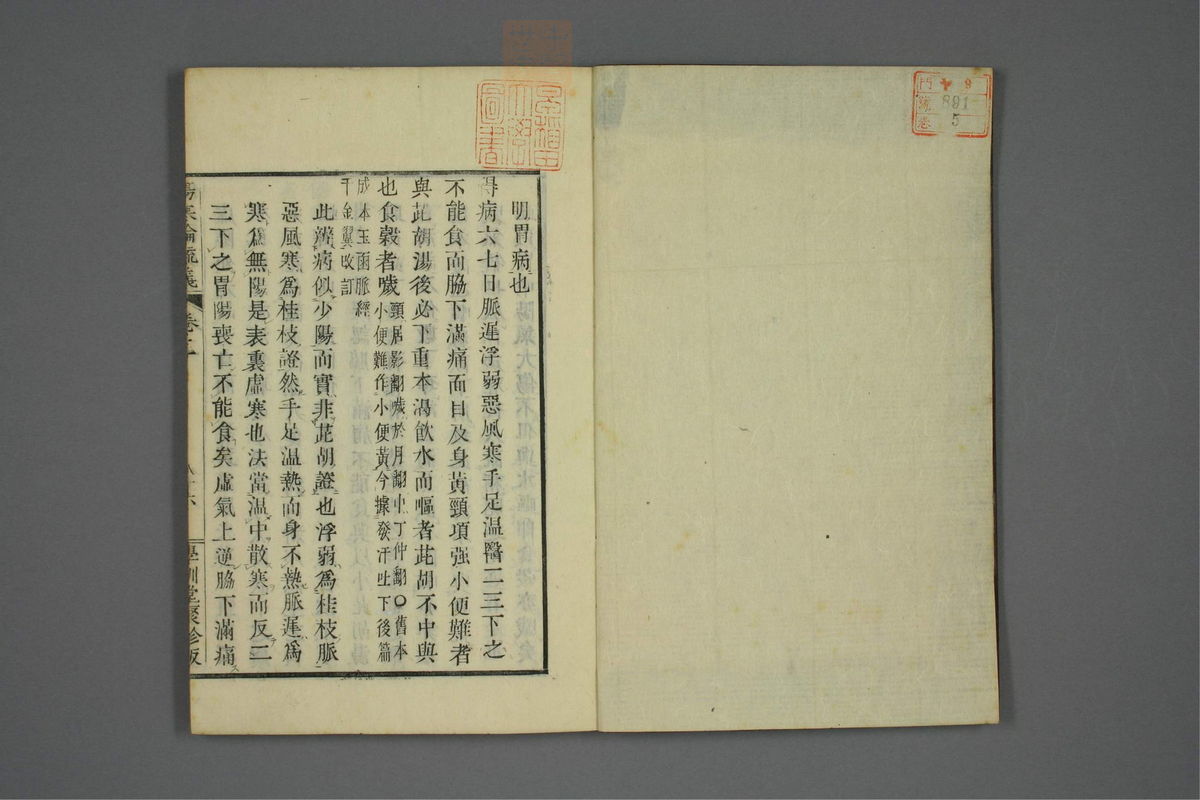 明胃病也
得病六七日脈遲浮弱惡風寒手足温醫二三下之
不能食而脇下滿痛面目及身黃頸項强小便難者
與茈胡湯後必下重本渴飲水而嘔者茈胡不中與
也食穀者噦
頸居影翻噦於月翻中丁仲翻○舊本
小便難作小便黃今據發汗吐下後篇
成本玉函脈經
千金翼改訂
此辨病似少陽而實非茈胡證也浮弱爲桂枝脈
惡風寒爲桂枝證然手足温熱而身不熱脈遲爲
寒爲無陽是表裏虛寒也法當温中散寒而反二
三下之胃陽喪亡不能食矣虛氣上逆脇下滿痛
傷寒論疏義
卷三
學訓堂聚珍版
早稻田
大學
圖書
門
9
號
891
卷
5